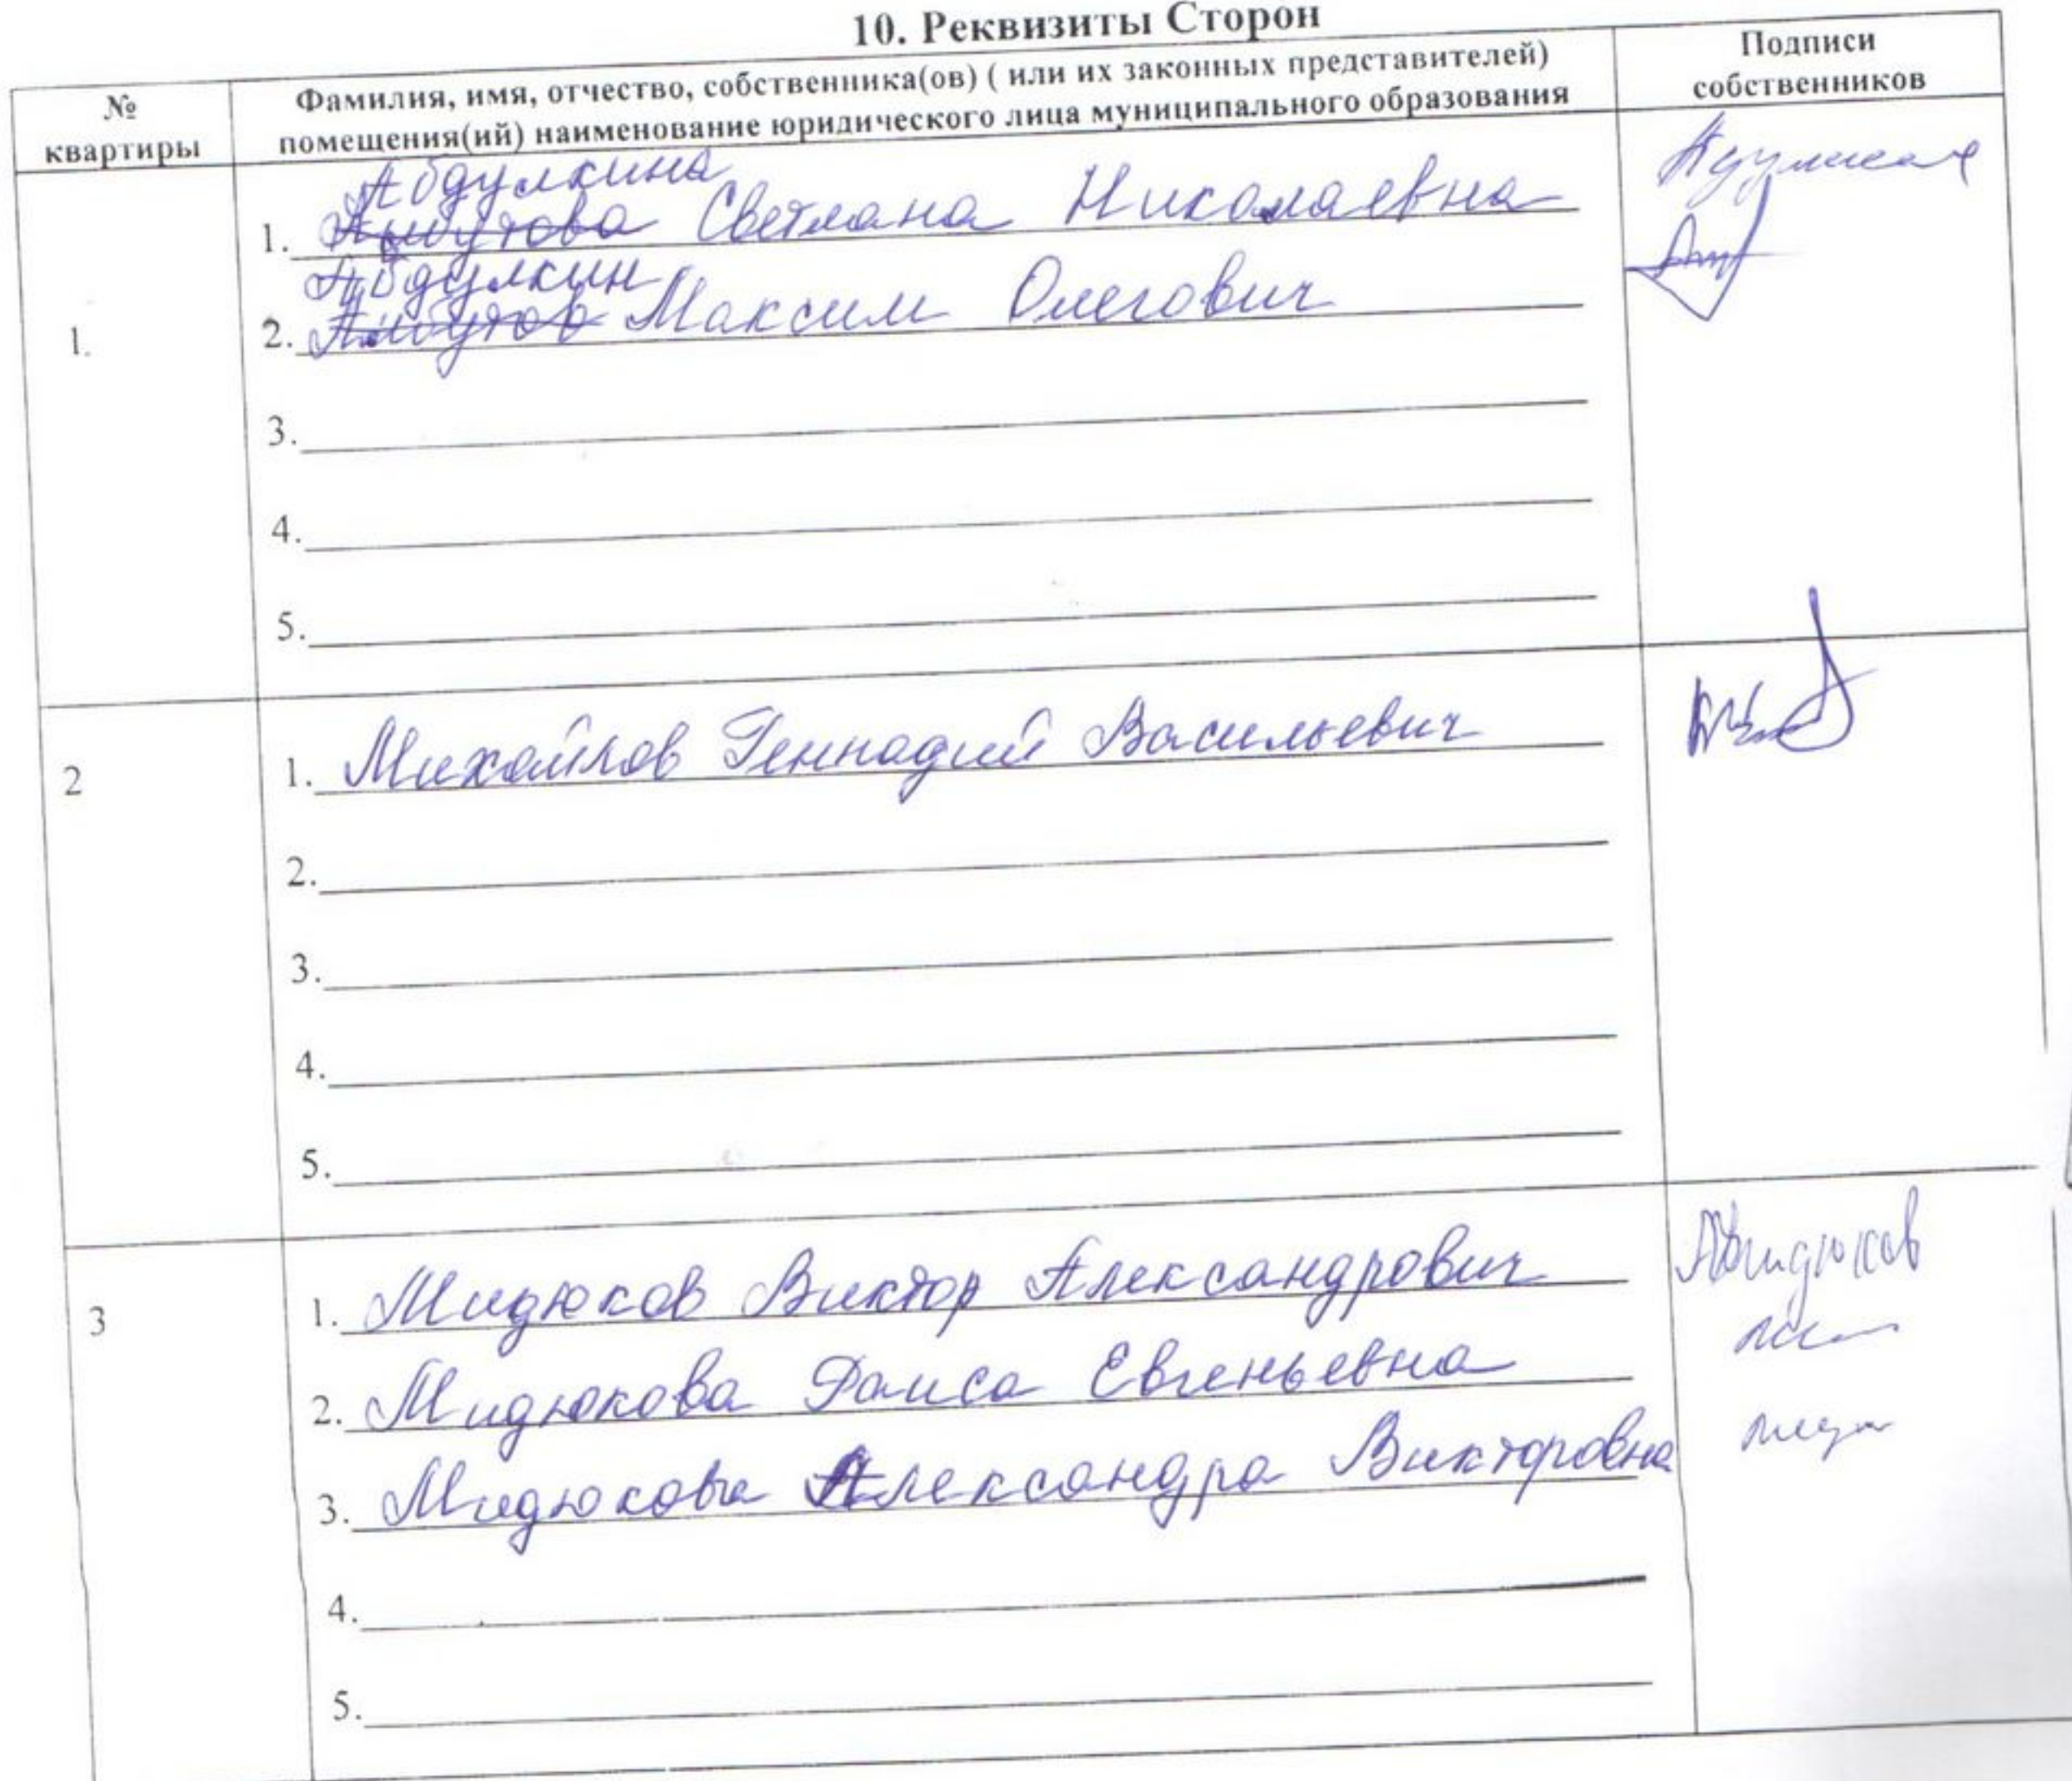 10. Реквизиты Сторон
№ квартиры
Фамилия, имя, отчество, собственника(ов) ( или их законных представителей)
помещения(ий) наименование юридического лица муниципального образования
Подписи
собственников
1.
Абдулкина
1. Светлана Николаевна
Абдулкин
2. Максим Олегович
3.
4.
5.
2
1. Михайлов Геннадий Васильевич
2.
3.
4.
5.
3
1. Мидюков Виктор Александрович
Мидюков
2. Мидюкова Раиса Евгеньевна
3. Мидюкова Александра Викторовна
4.
5.